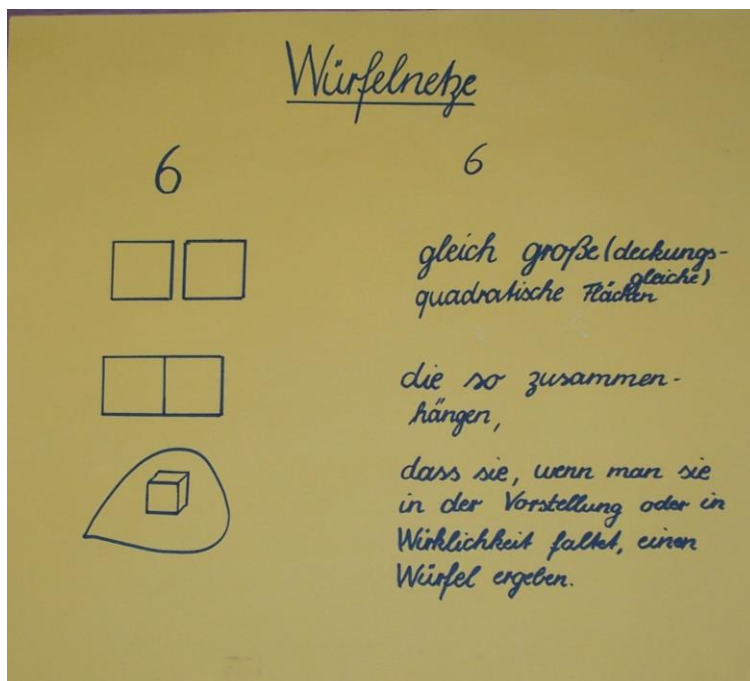 Würfelnetze
6 6
gleich große (deckungs-
gleiche)
quadratische Flächen
die so zusammen-
hängen,
dass sie, wenn man sie
in der Vorstellung oder in
Wirklichkeit faltet, einen
Würfel ergeben.